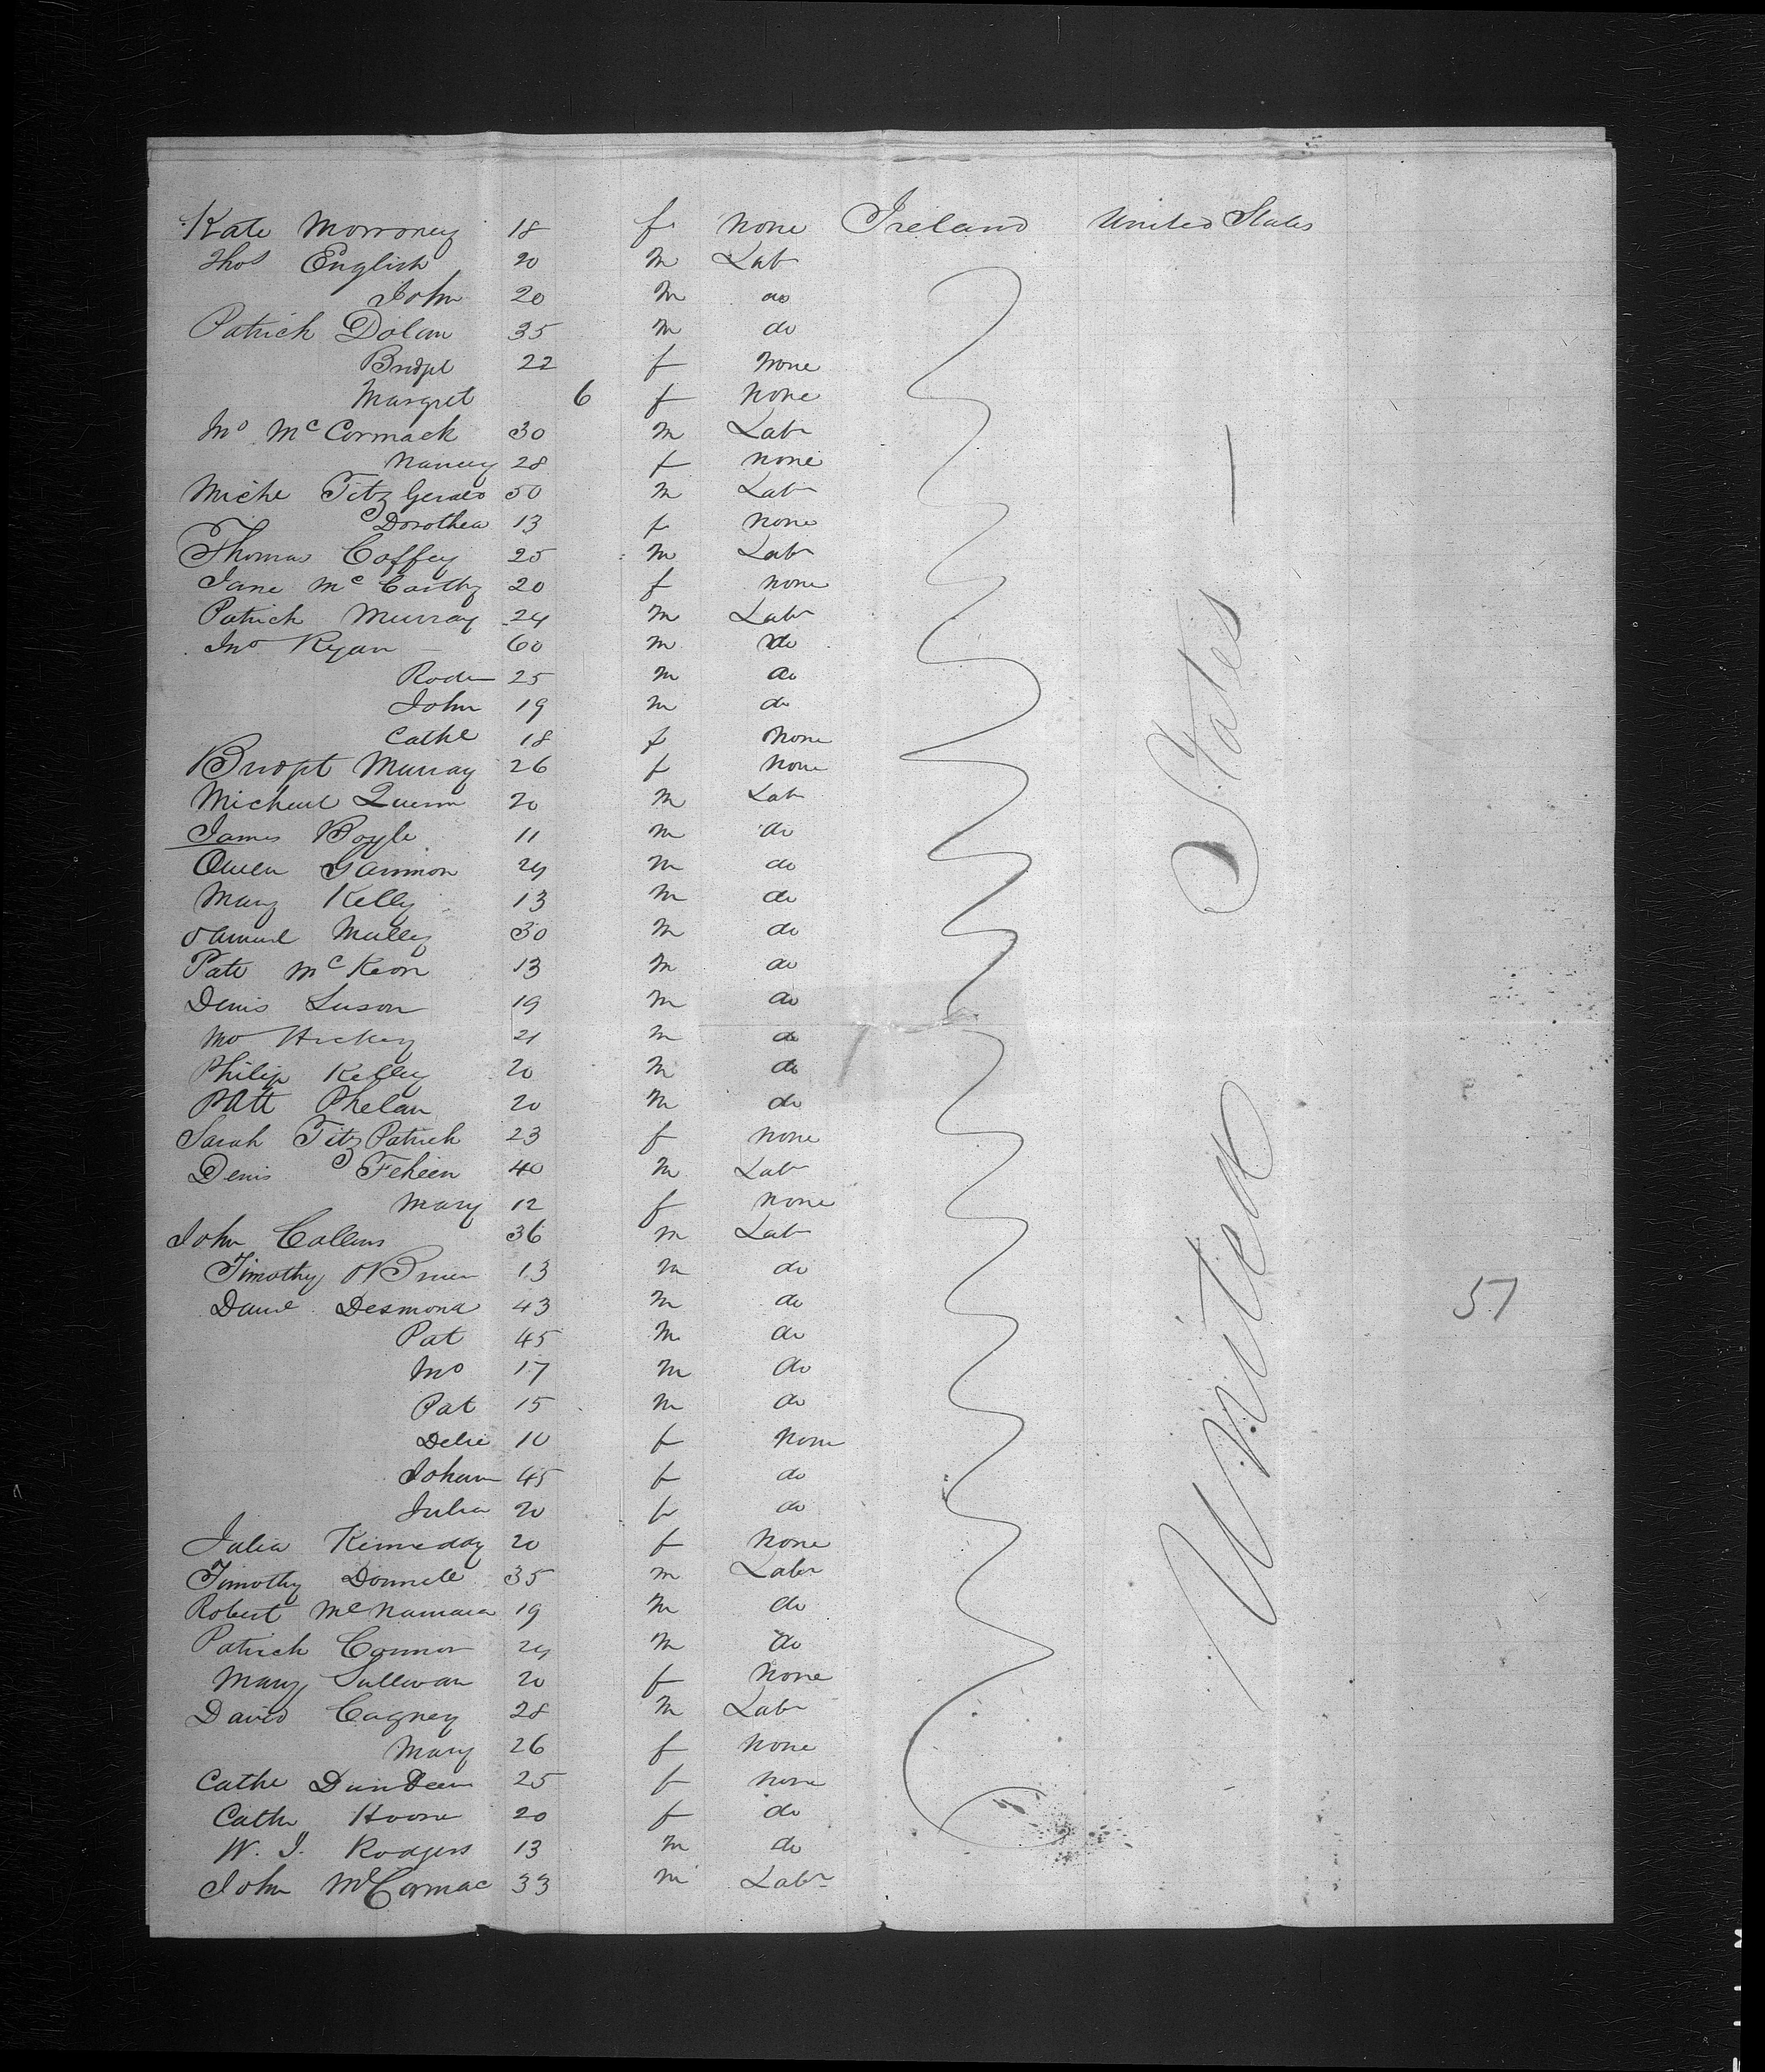 Kate Morroney 18 f. None Ireland United States
Thos English 20 m Lab
John 20 m do
Patrick Dolan 35 m do
Bridget 22 f None
Margret 6 f None
Mc Cormack 30 m Labr
Nancy 28 f None
Miche Fitz Gerald 50 m Labr
Dorothea 13 f None
Thomas Coffey 25 m Labr
Jane Mc Carthy 20 f None
Patrick Murray 24 m Labr
Jno Ryan — 60 m do
Roder 25 m do
John 19 m do
Cathe 18 f None
Bridget Murray 26 f None
Michael Quinn 20 m Lab
James Boyle 11 m do
Owen Gannon 24 m do
Mary Kelly 13 m do
Samuel Mulley 30 m do
Patt Mc Keon 13 m do
Denis Luson 19 m do
Hickey 21 m do
Philip Kelley 20 m do
Patt Phelan 20 m do
Sarah Fitz Patrick 23 f None
Denis Feheen 40 m Lab
Mary 12 f None
John Collins 36 m Lab
Timothy O'Brien 13 m do
Danl. Desmond 43 m do
Pat 45 m do
Mo 17 m do
Pat 15 m do
Delie 10 f None
Johan 45 f do
Julia 20 f do
Julia Kenneddy 20 f None
Timothy Donnell 35 m Labr
Robert McNamara 19 m do
Patrick Connor 24 m do
Mary Sullivan 20 f None
David Cagney 28 m Labr
Mary 26 f None
Cathe 25 f None
Cathe 20 f do
W. J. Rodgers 13 m do
John McCormac 33 m Labr
United States —
57